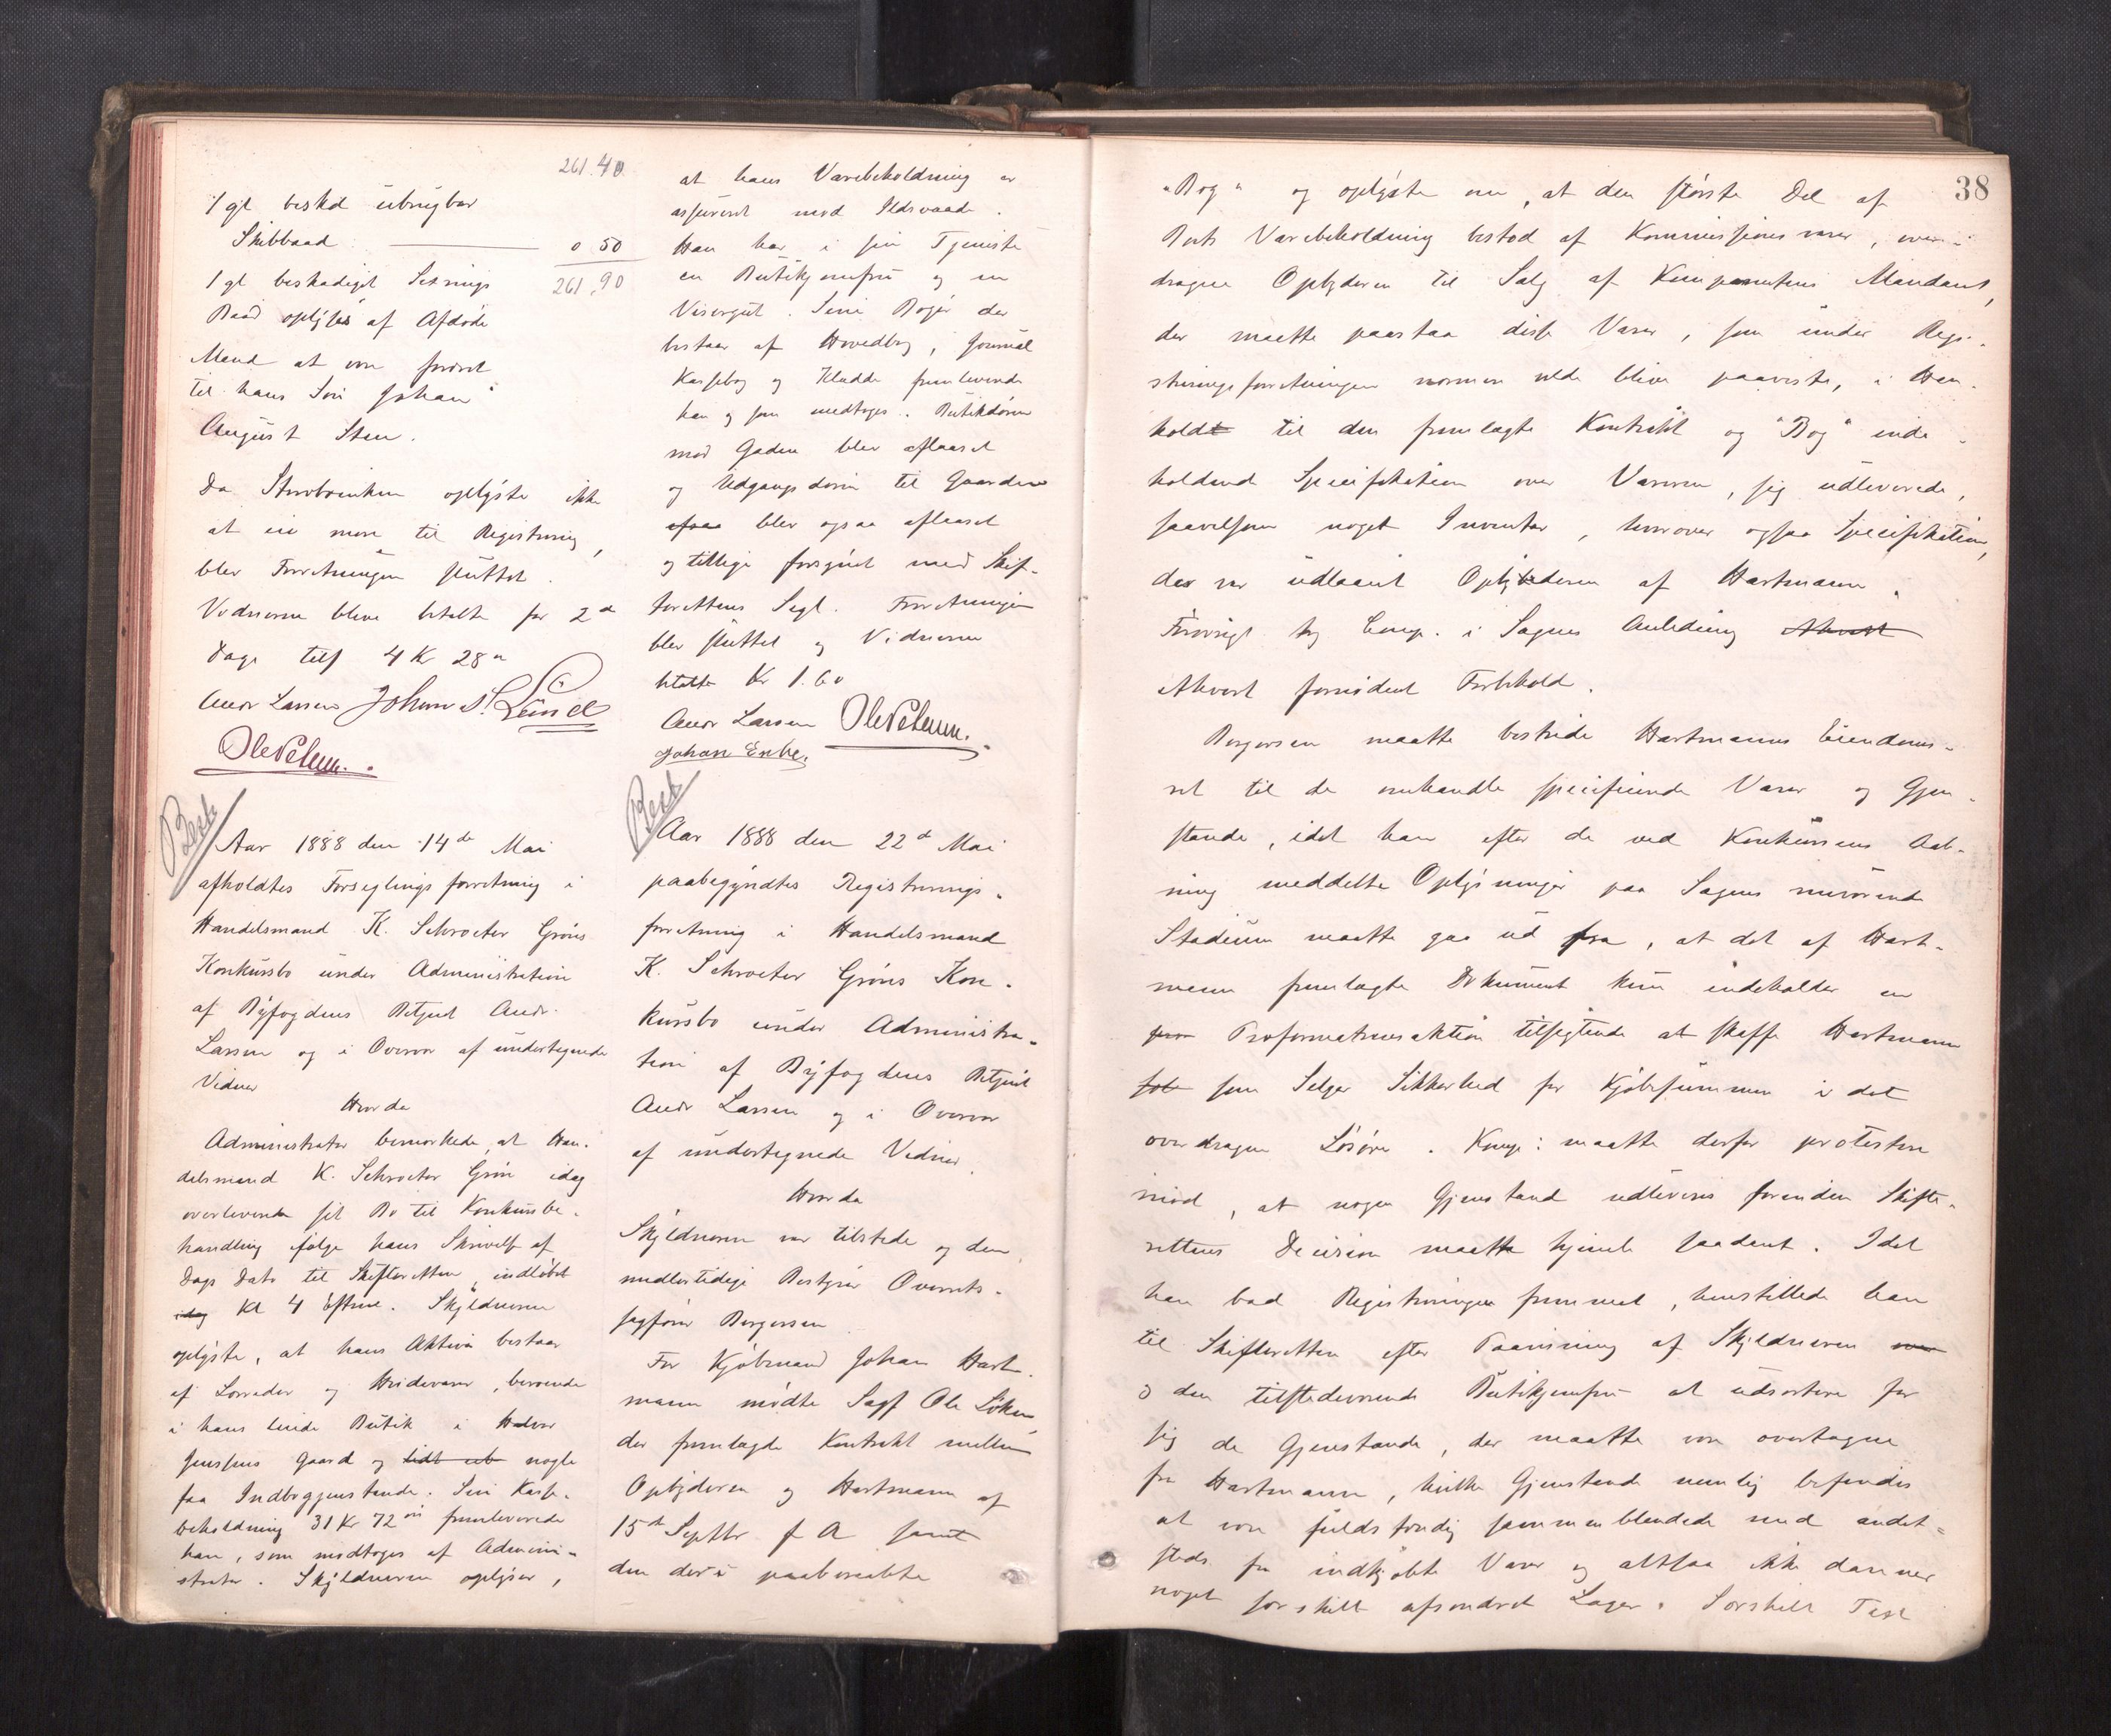 261.40
1 gl beskd ubrugbar
Skibbaad 0 50
1 gl beskadiget Setrings 261,90
Baad oplyses af Afdøde
Mand at være foræret
til hans Søn Johan
August Sten.
Da Stervboenken oplyste ikke
at eie mere til Registrering,
blev Forretningen sluttet.
Vidnerne bleve betalte for 2de
Dage tils 4 Kr 28 ø
Andr Larsen Johan S. Lund
Ole Pedersen.
Aar 1888 den 14de Mai
afholdtes Forseglingsforretning i
Handelsmand K. Schroeter Grøns
Konkursbo under Administration
af Byfogdens Betjent Andr.
Larsen og i Overvær af undertegnede
Vidner
Hvorda
Administrator bemærkede, at Han-
delsmand K. Schroeter Grøn idag
overleverede sit Bo til Konkursbe-
handling ifølge hans Skrivelse af
Dags Dato til Skifteretten, indløbet
idag Kl 4 Efterm. Skyldneren
oplyste, at hans Aktiva bestaar
af Lærreder og Hvidevarer, beroende
i hans leiede Butik i Halvor
Jensens Gaard og lidt ub nogle
faa Indbogjenstande. Sin Kasse-
beholdning 31 Kr 72 øre fremleverede
han, som modtoges af Admini-
strator. Skyldneren oplyser,
at hans Varebeholdning er
assureret mod Ildsvaade.
Han har i sin Tjeneste
en Butikjomfru og en
Visergut. Sine Bøger der
bestaar af Hovedbog, Journal
Kassebog og Kladde fremleverede
han og som medtoges. Butikdøren
mod Gaden blev aflaaset
og Udgangsdøren til Gaarden
ogsaa blev ogsaa aflaaset
og tillige forsynet med Skif-
terettens Segl. Forretningen
blev sluttet og Vidnerne
betalte Kr 1.60
Andr Larsen Ole Pedersen.
Johan Enke.
Aar 1888 den 22d Mai
paabegyndtes Registrerings-
forretning i Handelsmand
K. Schroeter Grøns Kon-
kursbo under Administra-
tion af Byfogdens Betjent
Andr Larsen og i Overvær
af undertegnede Vidner.
Hvorda
Skyldneren var tilstede og den
midlertidige Bestyrer Overrets-
sagfører Borgersen
For Kjøbmand Johan Hart-
mann mødte Sagf Ole Løken
der fremlagde Kontrakt mellem
Opbyderen og Hartmann af
15de Septbr f A samt
den deri paaberaabte
38
"Bog" og oplyste om, at den største Del af
Boets Varebeholdning bestod af Kommissionsvarer, over-
dragne Opbyderen til Salg af Komparentens Mandant,
der maatte paastaa disse Varer, som under Regi-
streringsforretningen nærmere vilde blive paaviste, i Hen-
holdt til den fremlagte Kontrakt og "Bog" inde-
holdende Specifikation over Varerne, sig udleverede,
saavelsom noget Inventar, hvorover ogsaa Specifikation,
der var udlaant Opbyderen af Hartmann.
Forøvrigt tog Comp. i Sagens Anledning
ethvert fornødent Forbehold.
Borgersen maatte bestride Hartmanns Eiendoms-
ret til de omhandlede specificerede Varer og Gjen-
stande, idet han efter de ved Konkursens Aab-
ning meddelte Oplysninger paa Sagens nuværende
Stadium maatte gaa ud fra, at det af Hart-
mann fremlagte Dokument kun indeholder en
Proformatransaktion tilsigtende at skaffe Hartmann
som Selger Sikkerhed for Kjøbesummen i det
overdragne Løsøre. Komp: maatte derfor protestere
mod, at nogen Gjenstand udleveres forinden Skifte-
rettens Decision maatte hjemle saadant. Idet
han bad Registreringen fremmet, henstillede han
til Skifteretten efter Paavisning af Skyldneren
og den tilstedeværende Butikjomfru at udsortere for
sig de Gjenstande, der maatte være overtagne
fra Hartmann, hvilke Gjenstande nemlig befandtes
at være fuldstændig sammenblandede med andet-
steds fra indkjøbte Varer og altsaa ikke danner
noget særskilt afsondret Lager. Særskilt Taxt